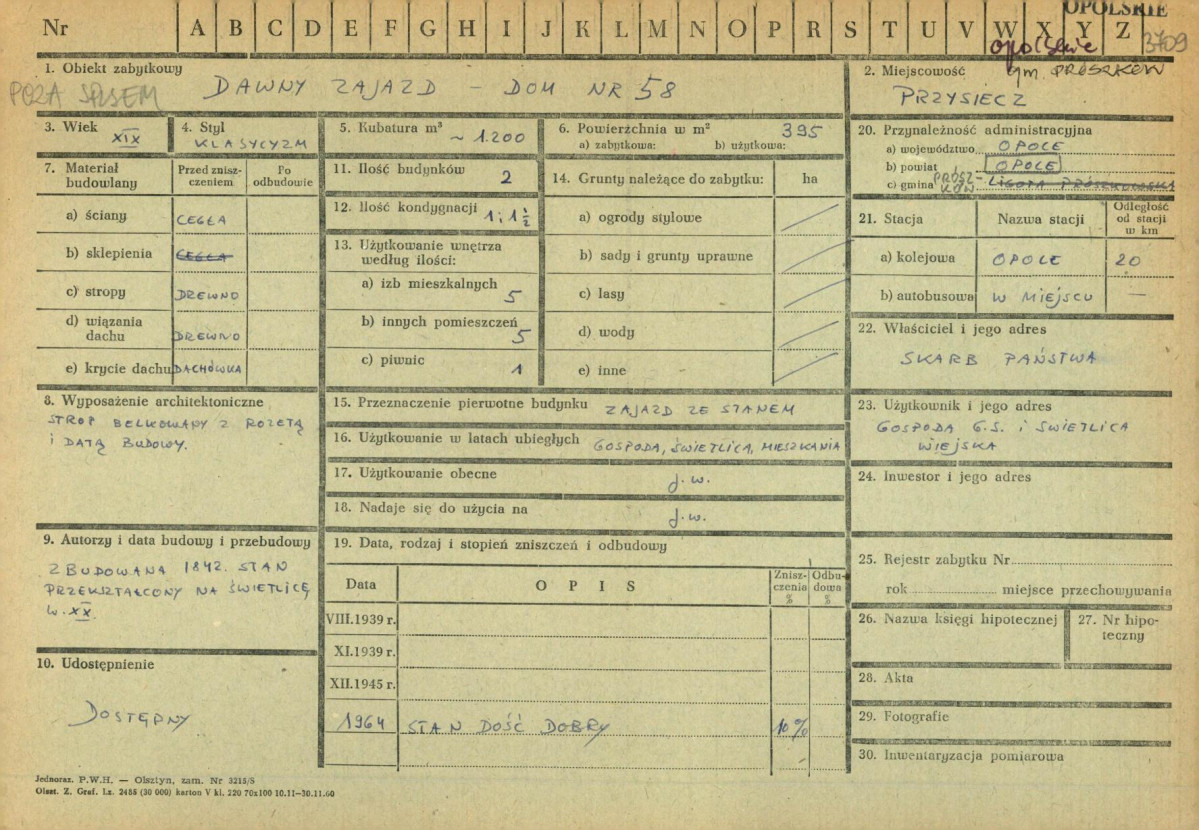 OPOLSKIE
Nr A B C D E F G H I J K L M N O P R S T U V W X Y Z 3709
opolskie
1. Obiekt zabytkowy
POZA SPISEM
DAWNY ZAJAZD – DOM NR 58
2. Miejscowość gm. PRÓSZKÓW
PRZYSIECZ
3. Wiek
XIX
4. Styl
KLASYCYZM
5. Kubatura m³
~ 1.200
6. Powierzchnia w m² 395
a) zabytkowa: b) użytkowa:
7. Materiał budowlany
Przed zniszczeniem
Po odbudowie
a) ściany CEGŁA
b) sklepienia CEGŁA
c) stropy DREWNO
d) wiązania dachu DREWNO
e) krycie dachu DACHÓWKA
8. Wyposażenie architektoniczne
STROP BELKOWANY Z ROZETĄ
I DATĄ BUDOWY.
9. Autorzy i data budowy i przebudowy
ZBUDOWANA 1842. STAN
PRZEKSZTAŁCONY NA ŚWIETLICĘ
W. XX.
10. Udostępnienie
DOSTĘPNY
11. Ilość budynków 2
12. Ilość kondygnacji 1 i 1½
13. Użytkowanie wnętrza
według ilości:
a) izb mieszkalnych 5
b) innych pomieszczeń 5
c) piwnic 1
14. Grunty należące do zabytku: ha
a) ogrody stylowe
b) sady i grunty uprawne
c) lasy
d) wody
e) inne
15. Przeznaczenie pierwotne budynku ZAJAZD ZE STANEM
16. Użytkowanie w latach ubiegłych GOSPODA, ŚWIETLICA, MIESZKANIA
17. Użytkowanie obecne j.w.
18. Nadaje się do użycia na j.w.
19. Data, rodzaj i stopień zniszczeń i odbudowy
Data
O P I S
Zniszczenia %
Odbudowa %
VIII.1939 r.
XI.1939 r.
XII.1945 r.
1964 STAN DOŚĆ DOBRY 10%
20. Przynależność administracyjna
a) województwo OPOLE
b) powiat OPOLE
c) gmina PRÓSZKÓW LIGOTA PRÓSZKOWSKA
21. Stacja
Nazwa stacji
Odległość od stacji w km
a) kolejowa OPOLE 20
b) autobusowa W MIEJSCU —
22. Właściciel i jego adres
SKARB PAŃSTWA
23. Użytkownik i jego adres
GOSPODA G.S. I ŚWIETLICA
WIEJSKA
24. Inwestor i jego adres
25. Rejestr zabytku Nr
rok miejsce przechowywania
26. Nazwa księgi hipotecznej
27. Nr hipoteczny
28. Akta
29. Fotografie
30. Inwentaryzacja pomiarowa
Jednoraz. P.W.H. — Olsztyn, zam. Nr 3215/S
Olszt. Z. Graf. Lz. 2488 (30 000) karton V kl. 220 70x100 10.11—30.11.60